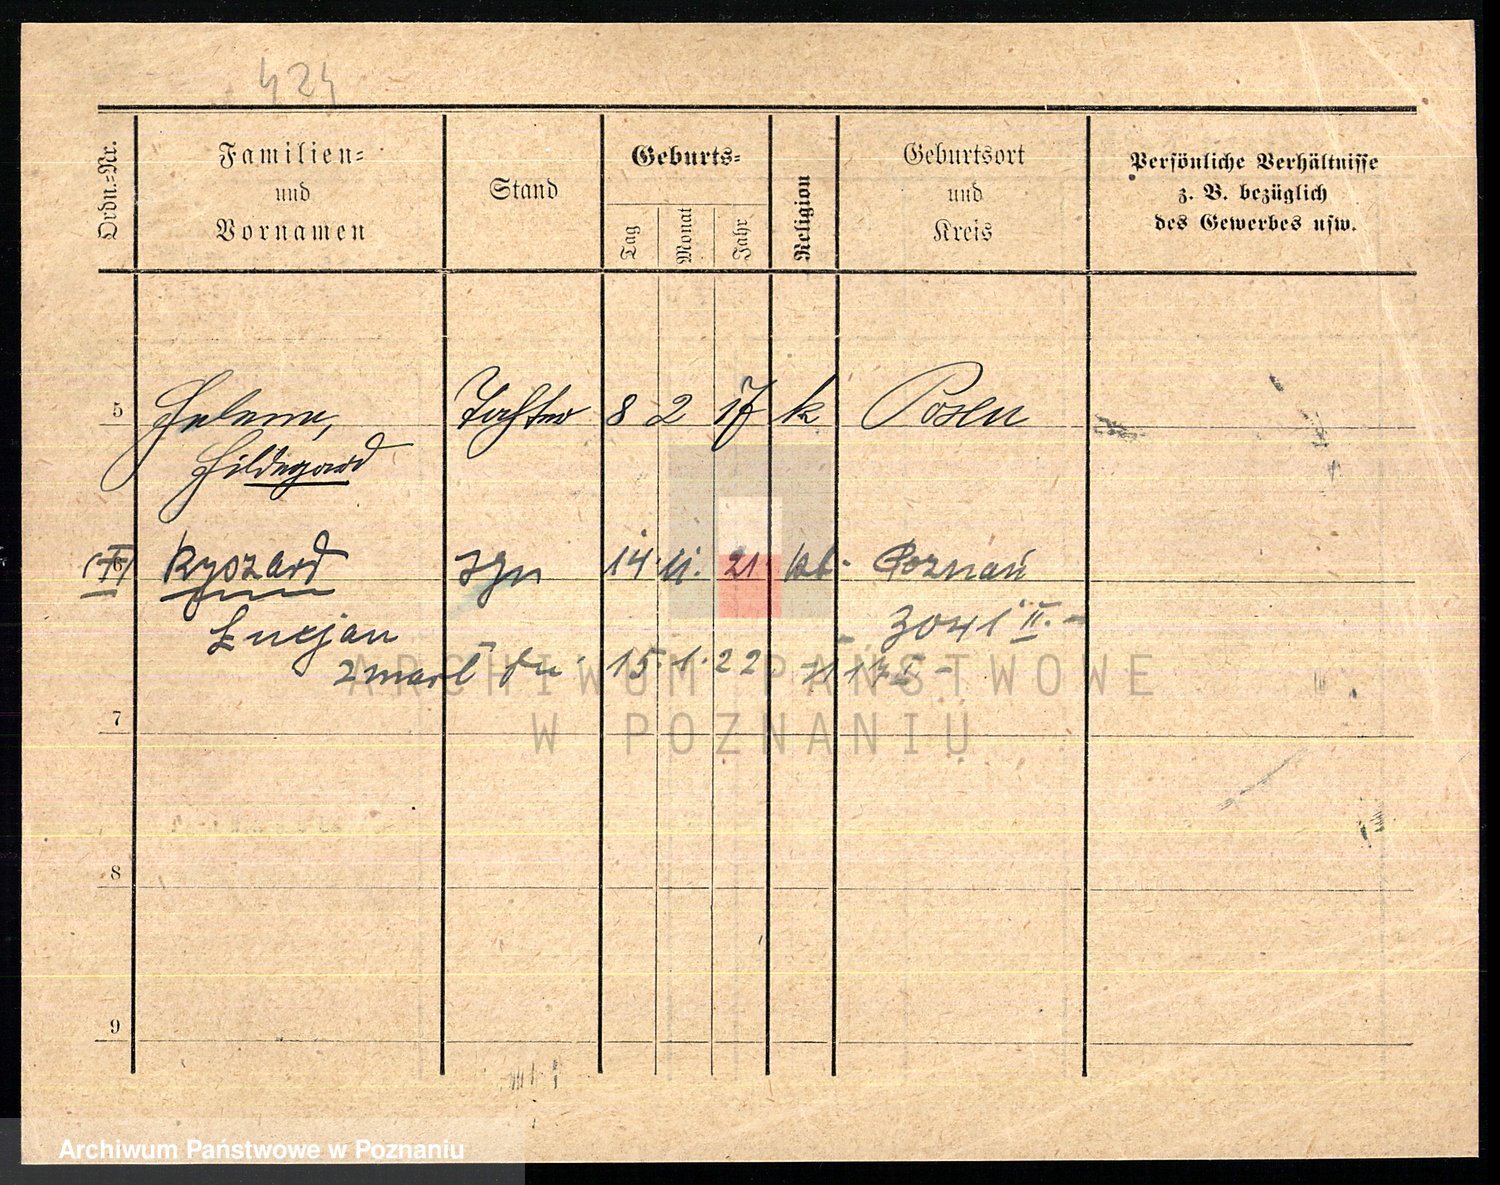 424
Ordn.-Nr.
Familien-
und
Vornamen
Stand
Geburts-
Tag
Monat
Jahr
Religion
Geburtsort
und
Kreis
Persönliche Verhältnisse
z. B. bezüglich
des Gewerbes usw.
5 Helene, Tochter 8 2 17 k Posen
Hildegard
6 Ryszard syn 14. 11. 21. kt. Poznań
Łucjan 3041 II. -
zmarł dn. 15. 1. 22
7
8
9
ARCHIWUM PAŃSTWOWE
W POZNANIU
Archiwum Państwowe w Poznaniu